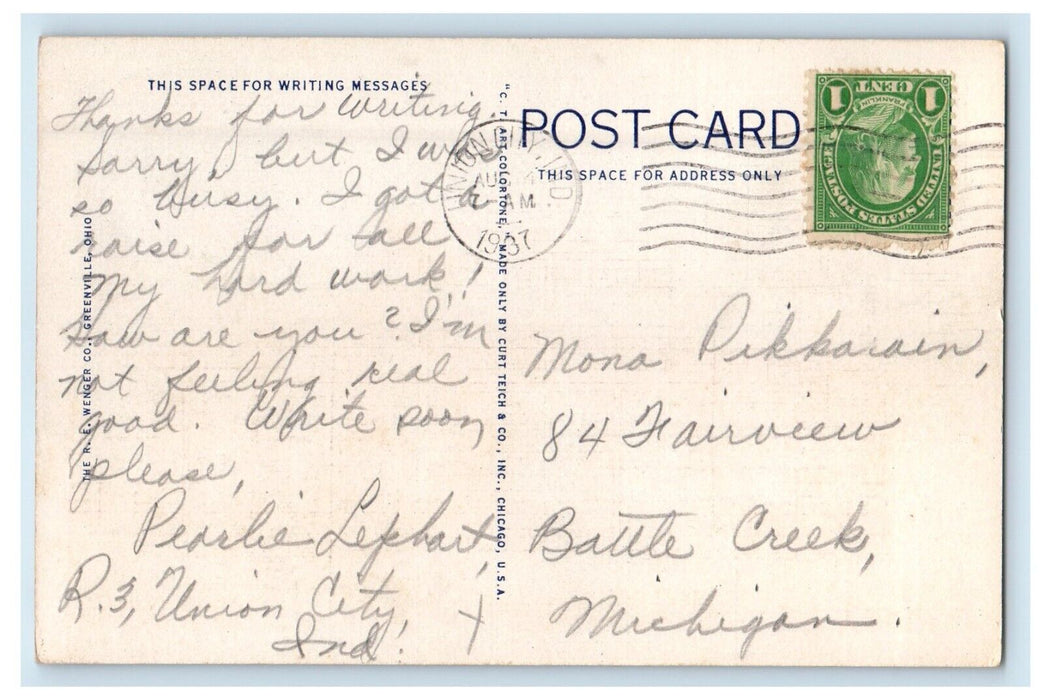 THIS SPACE FOR WRITING MESSAGES
Thanks for writing.
Sorry, but I was
so busy. I got a
raise for all
my hard work!
How are you? I'm
not feeling real
good. Write soon
please,
Pearlie Lephart,
R.3, Union City,
Ind.
THE R. E. WENGER CO., GREENVILLE, OHIO
"C. T. ART-COLORTONE" MADE ONLY BY CURT TEICH & CO., INC., CHICAGO, U.S.A.
POST CARD
THIS SPACE FOR ADDRESS ONLY
UNION CITY, IND
AUG
AM
1937
1 CENT 1
FRANKLIN
UNITED STATES POSTAGE
Mona Pikkarain,
84 Fairview
Battle Creek,
Michigan.